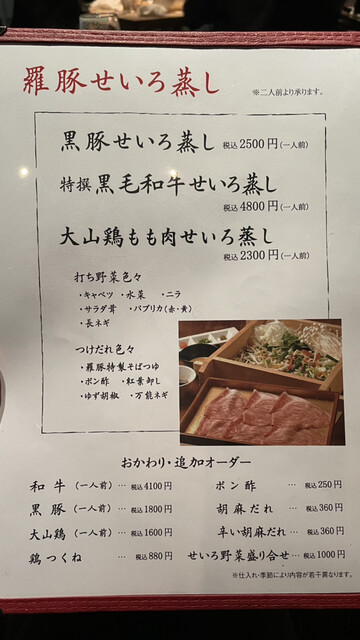 羅豚せいろ蒸し ※二人前より承ります。
黒豚せいろ蒸し 税込2500円(一人前)
特撰黒毛和牛せいろ蒸し
税込4800円(一人前)
大山鶏もも肉せいろ蒸し
税込2300円(一人前)
打ち野菜色々
・キャベツ ・水菜 ・ニラ
・サラダ茸 ・パプリカ(赤・黄)
・長ネギ
つけだれ色々
・羅豚特製そばつゆ
・ポン酢 ・紅葉卸し
・ゆず胡椒 ・万能ネギ
おかわり・追加オーダー
和牛(一人前)… 税込4100円
黒豚(一人前)… 税込1800円
大山鶏(一人前)… 税込1600円
鶏つくね … 税込880円
ポン酢 … 税込250円
胡麻だれ … 税込360円
辛い胡麻だれ … 税込360円
せいろ野菜盛り合せ … 税込1000円
※仕入れ・季節により内容が若干異なります。